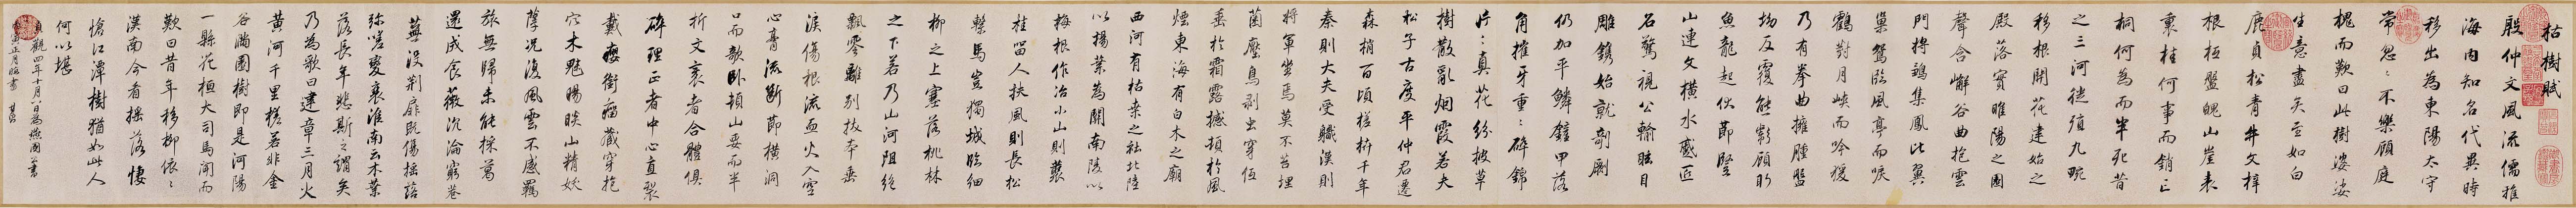 枯樹賦
殷仲文風流儒雅
海內知名代異時
移出為東陽太守
常忽〻不樂顧庭
槐而歎曰此樹婆娑
生意盡矣至如白
鹿貞松青牛文梓
根柢盤魄山崖表
裏桂何事而銷亡
桐何為而半死昔
之三河徙殖九畹
移根開花建始之
殿落實睢陽之園
聲含嶰谷曲抱雲
門將鶵集鳳比翼
巢鴛臨風亭而唳
鶴對月峽而吟猨
乃有拳曲擁腫盤
坳反覆熊彪顧盼
魚龍起伏節豎
山連文橫水蹙匠
石驚視公輸眩目
雕鐫始就剞劂
仍加平鱗鏟甲落
角摧牙重〻碎錦
片〻真花紛披草
樹散亂烟霞若夫
松子古度平仲君遷
森梢百頃槎枿千年
秦則大夫受職漢則
將軍坐焉莫不苔埋
菌壓鳥剥虫穿低
垂於霜露撼頓於風
煙東海有白木之廟
西河有枯桑之社北陸
以楊葉為關南陵以
梅根作冶小山則叢
桂留人扶風則長松
繫馬豈獨城臨細
柳之上塞落桃林
之下若乃山河阻絶
飄零離别拔本垂
淚傷根流血火入空
心膏流斷節橫洞
口而欹卧頓山要而半
折文衺者合體俱
碎理正者中心直裂
戴癭銜瘤藏穿抱
穴木魅睗睒山精妖
孽況復風雲不感羈
旅無歸未能採葛
還成食薇沉淪窮巷
蕪没荆扉既傷搖落
彌嗟變衰淮南云木葉
落長年悲斯之謂矣
乃為歌曰建章三月火
黄河千里槎若非金
谷滿園樹即是河陽
一縣花桓大司馬聞而
歎曰昔年移柳依〻
漢南今看搖落悽
愴江潭樹猶如此人
何以堪
貞觀四年十月八日為燕國公書
寅正月臨書 其昌